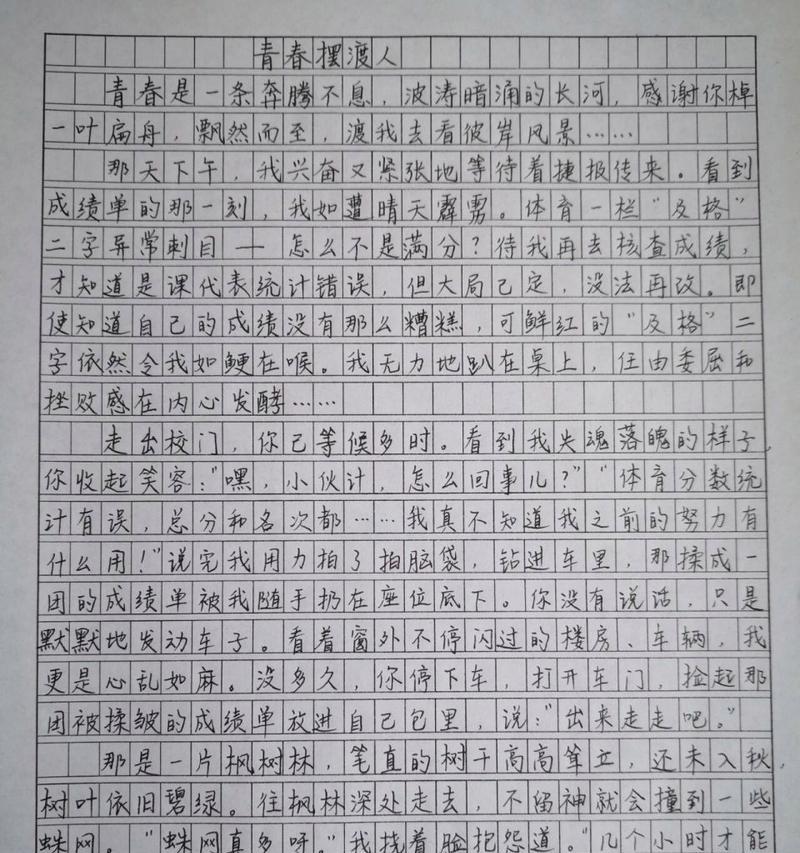 青春摆渡人
青春是一条奔腾不息，波涛暗涌的长河，感谢你棹
一叶扁舟，飘然而至，渡我去看彼岸风景……
那天下午，我兴奋又紧张地等待着捷报传来。看到
成绩单的那一刻，我如遭晴天霹雳。体育一栏“及格”
二字异常刺目——怎么不是满分？待我再去核查成绩，
才知道是课代表统计错误，但大局已定，没法再改。即
使知道自己的成绩没有那么糟糕，可鲜红的“及格”二
字依然令我如鲠在喉。我无力地趴在桌上，任由委屈和
挫败感在内心发酵……
走出校门，你已等候多时。看到我失魂落魄的样子，
你收起笑容：“嘿，小伙计，怎么回事儿？”“体育分数统
计有误，总分和名次都……我真不知道我之前的努力有
什么用！”说完我用力拍了拍脑袋，钻进车里，那揉成一
团的成绩单被我随手扔在座位底下。你没有说话，只是
默默地发动车子。看着窗外不停闪过的楼房、车辆，我
更是心乱如麻。没多久，你停下车，打开车门，捡起那
团被揉皱的成绩单放进自己包里，说：“出来走走吧。”
那是一片枫树林，笔直的树干高高耸立，还未入秋，
树叶依旧碧绿。往枫林深处走去，不留神就会撞到一些
蛛网。“蛛网真多呀。”我挠着脸抱怨道。“几个小时才能